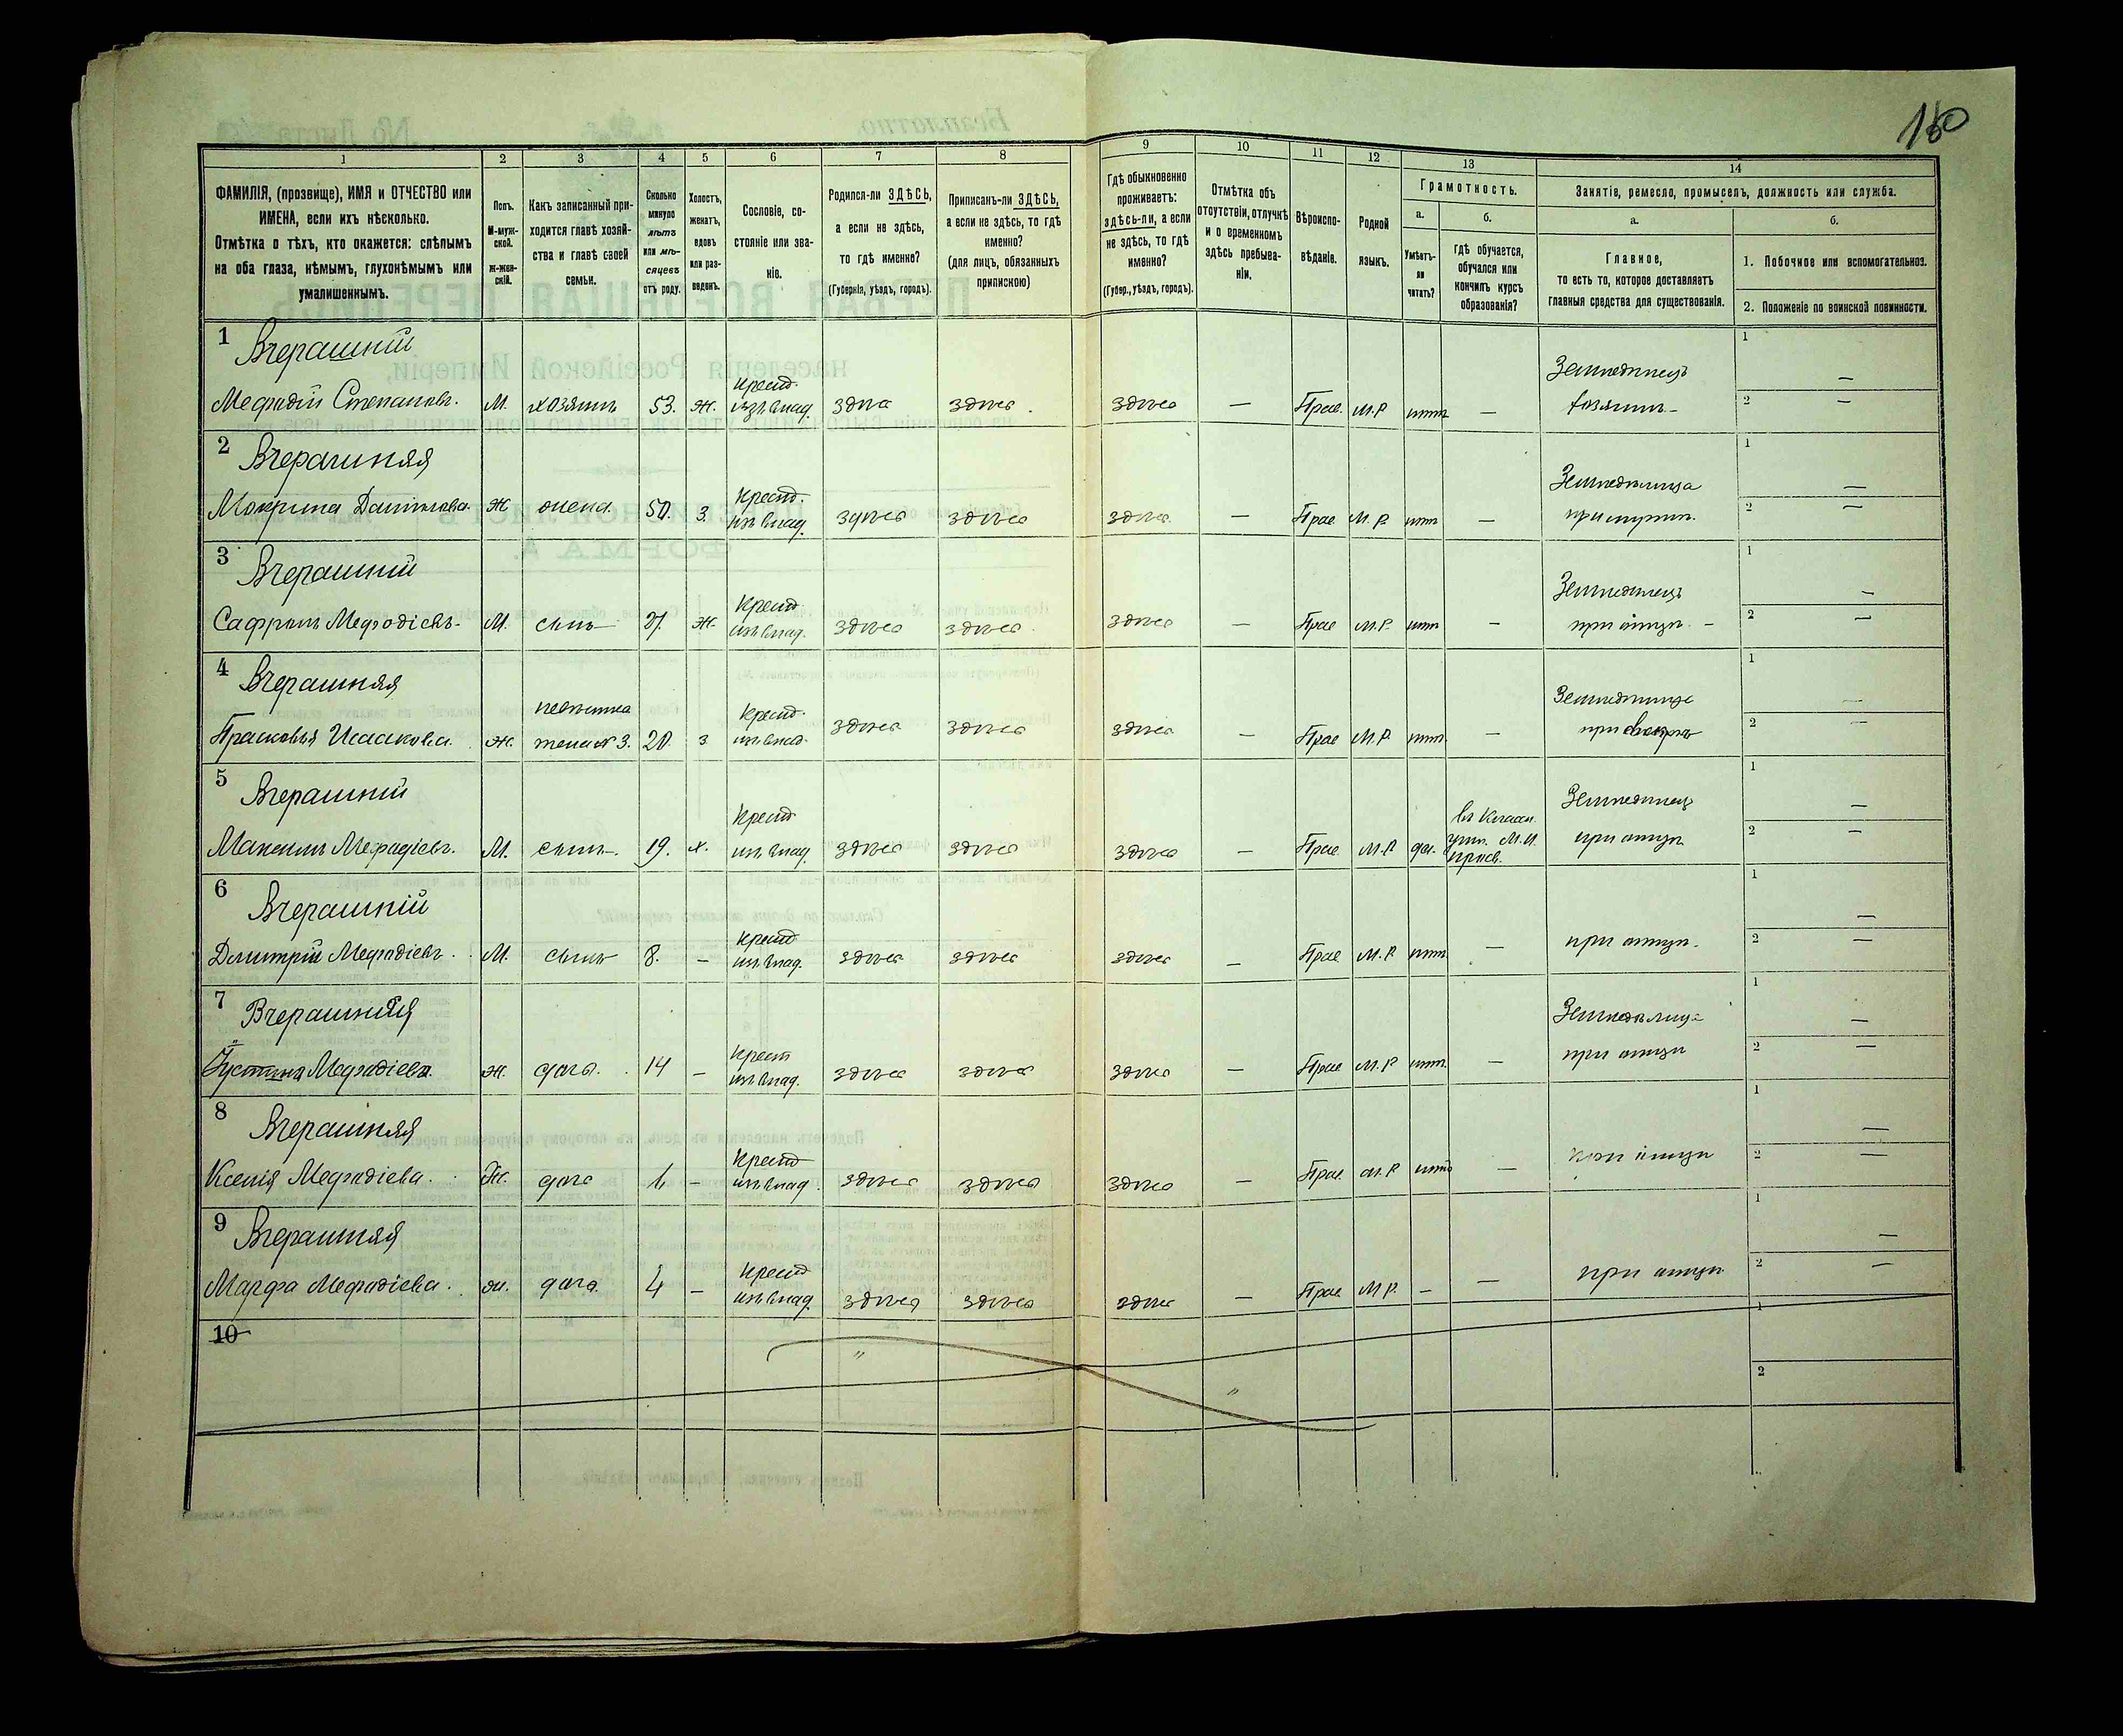 160
1 2 3 4 5 6 7 8 9 10 11 12 13 14
ФАМИЛІЯ, (прозвище), ИМЯ и ОТЧЕСТВО или
ИМЕНА, если ихъ нѣсколько.
Отмѣтка о тѣхъ, кто окажется: слѣпымъ
на оба глаза, нѣмымъ, глухонѣмымъ или
умалишеннымъ.
Полъ.
М-муж-
ской.
ж-жен-
скій.
Какъ записанный при-
ходится главѣ хозяй-
ства и главѣ своей
семьи.
Сколько
минуло
лѣтъ
или мѣ-
сяцевъ
отъ роду.
Холостъ,
женатъ,
вдовъ
или раз-
веденъ.
Сословіе, со-
стояніе или зва-
ніе.
Родился-ли ЗДѢСЬ,
а если не здѣсь,
то гдѣ именно?
(Губернія, уѣздъ, городъ).
Приписанъ-ли ЗДѢСЬ,
а если не здѣсь, то гдѣ
именно?
(для лицъ, обязанныхъ
припискою)
Гдѣ обыкновенно
проживаетъ:
здѣсь-ли, а если
не здѣсь, то гдѣ
именно?
(Губер., уѣздъ, городъ).
Отмѣтка объ
отсутствіи, отлучкѣ
и о временномъ
здѣсь пребыва-
ніи.
Вѣроиспо-
вѣданіе.
Родной
языкъ.
Грамотность.
а.
Умѣетъ-
ли
читать?
б.
Гдѣ обучается,
обучался или
кончилъ курсъ
образованія?
Занятіе, ремесло, промыселъ, должность или служба.
а.
Главное,
то есть то, которое доставляетъ
главныя средства для существованія.
б.
1. Побочное или вспомогательное.
2. Положеніе по воинской повинности.
1 Вчерашній
Мефодій Степановъ. М. хозяинъ 53. ж. крест. изъ влад. здѣсь здѣсь здѣсь — Прав. М.Р. нѣтъ — Земледѣлецъ хозяинъ 1 — 2 —
2 Вчерашняя
Макрина Данилова. Ж жена 50. з. Крест. изъ влад. здѣсь здѣсь здѣсь — Прав. М.Р. нѣтъ — Земледѣлица при мужѣ 1 — 2 —
3 Вчерашній
Сафронъ Мефодіевъ. М. сынъ ж. Крест. изъ влад. здѣсь здѣсь здѣсь — Прав М.Р. нѣтъ — Земледѣлецъ при отцѣ 1 — 2 —
4 Вчерашняя
Прасковья Исаакова. ж. невѣстка жена № 3. 20. з Крест. изъ влад. здѣсь здѣсь здѣсь — Прав М.Р. нѣтъ — Земледѣлица при свекрѣ 1 — 2 —
5 Вчерашній
Максимъ Мефодіевъ. М. сынъ 19. х. Крест изъ влад. здѣсь здѣсь здѣсь — Прав. М.Р. да. Земледѣлецъ при отцѣ 1 — 2 —
6 Вчерашній
Дмитрій Мефодіевъ. М. сынъ 8. — Крест изъ влад. здѣсь здѣсь здѣсь — Прав М.Р. нѣтъ — при отцѣ. 1 — 2 —
7 Вчерашняя
Устина Мефодіева. ж. дочь. 14 — Крест изъ влад. здѣсь здѣсь здѣсь — Прав М.Р. нѣтъ — Земледѣлица при отцѣ 1 — 2 —
8 Вчерашняя
Ксенія Мефодіева. Ж. дочь — Крест изъ влад. здѣсь здѣсь здѣсь — Прав. М.Р. нѣтъ — при отцѣ 1 — 2 —
9 Вчерашняя
Марфа Мефодіева. ж. дочь 4 — Крест изъ влад. здѣсь здѣсь здѣсь — Прав. М.Р. — — при отцѣ 1 — 2 —
10 " " 1 2